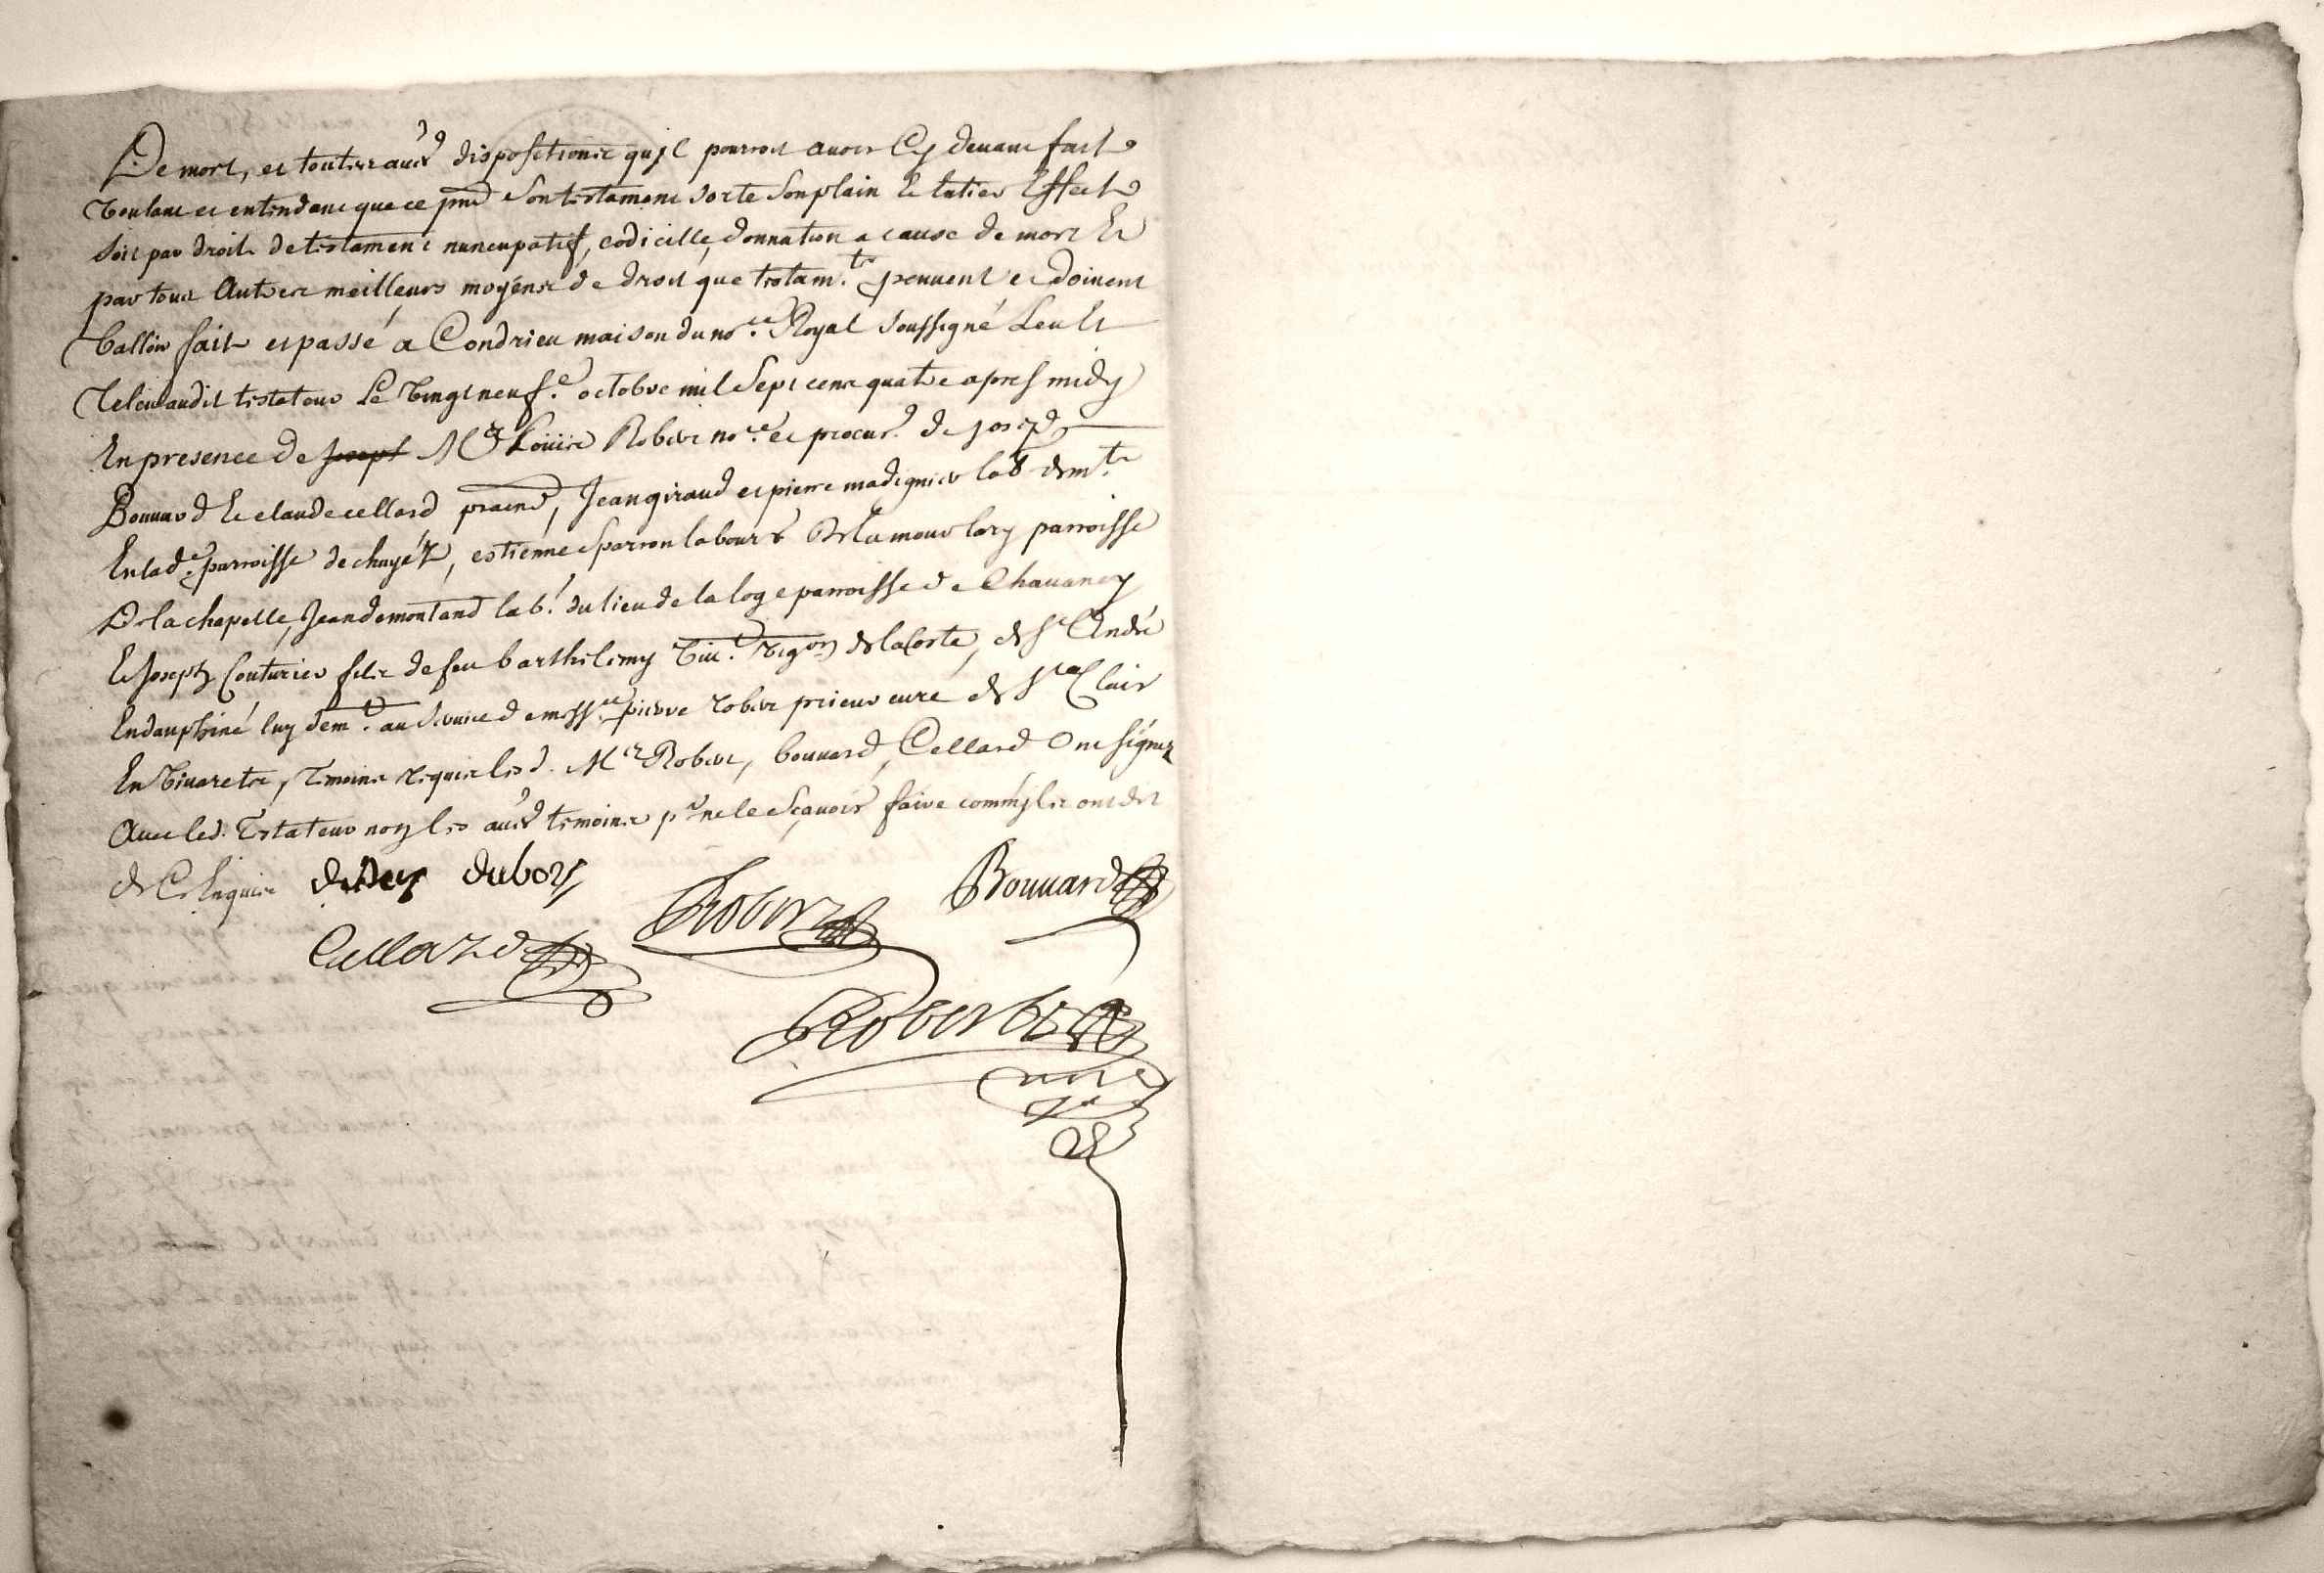 De mort, et touttes autres dispositions qu'jl pourroit avoir Cy devant fait
Voulant et entendant que ce pnt son testament sorte son plain Et Entier Effect
soit par droit de testament nuncupatif, codicille, donnation a cause de mort Et
par tous Autres meilleurs moyens de droit que testam.ts peuvent et doivent
Valloir fait et passé a Condrieu maison du no.re Royal soussigné Leu Et
Releu audit testateur Le Vingt neuf.e octobre mil sept cens quatre apres midy
En presence de Joseph M.e Louis Robert no.re et procur. de joseph
Bouvard Et claude cellard, Jean giraud et pierre madignier lab.rs
En lad.e parroisse de chuyés, estienne sparron labour.r parroisse
De la chapelle, Jean demontand lab.r du lieu de la loge parroisse de Chavanay
Et Joseph Couturier fils de feu barthelemy vig.on de la Coste, de s.t André
En dauphiné luy dem.t au service de mess.re pierre robert prieur curé de s.t Clair
En Vivarets, temoins requis lesd. M.es Robert, bouvard, Cellard Ont signez
Avec led. Testateur non les autres temoins p.r ne le sçavoir faire comm'jls ont dit
de Ce Enquis dubois
Robert Bouuard
Cellard
Robert